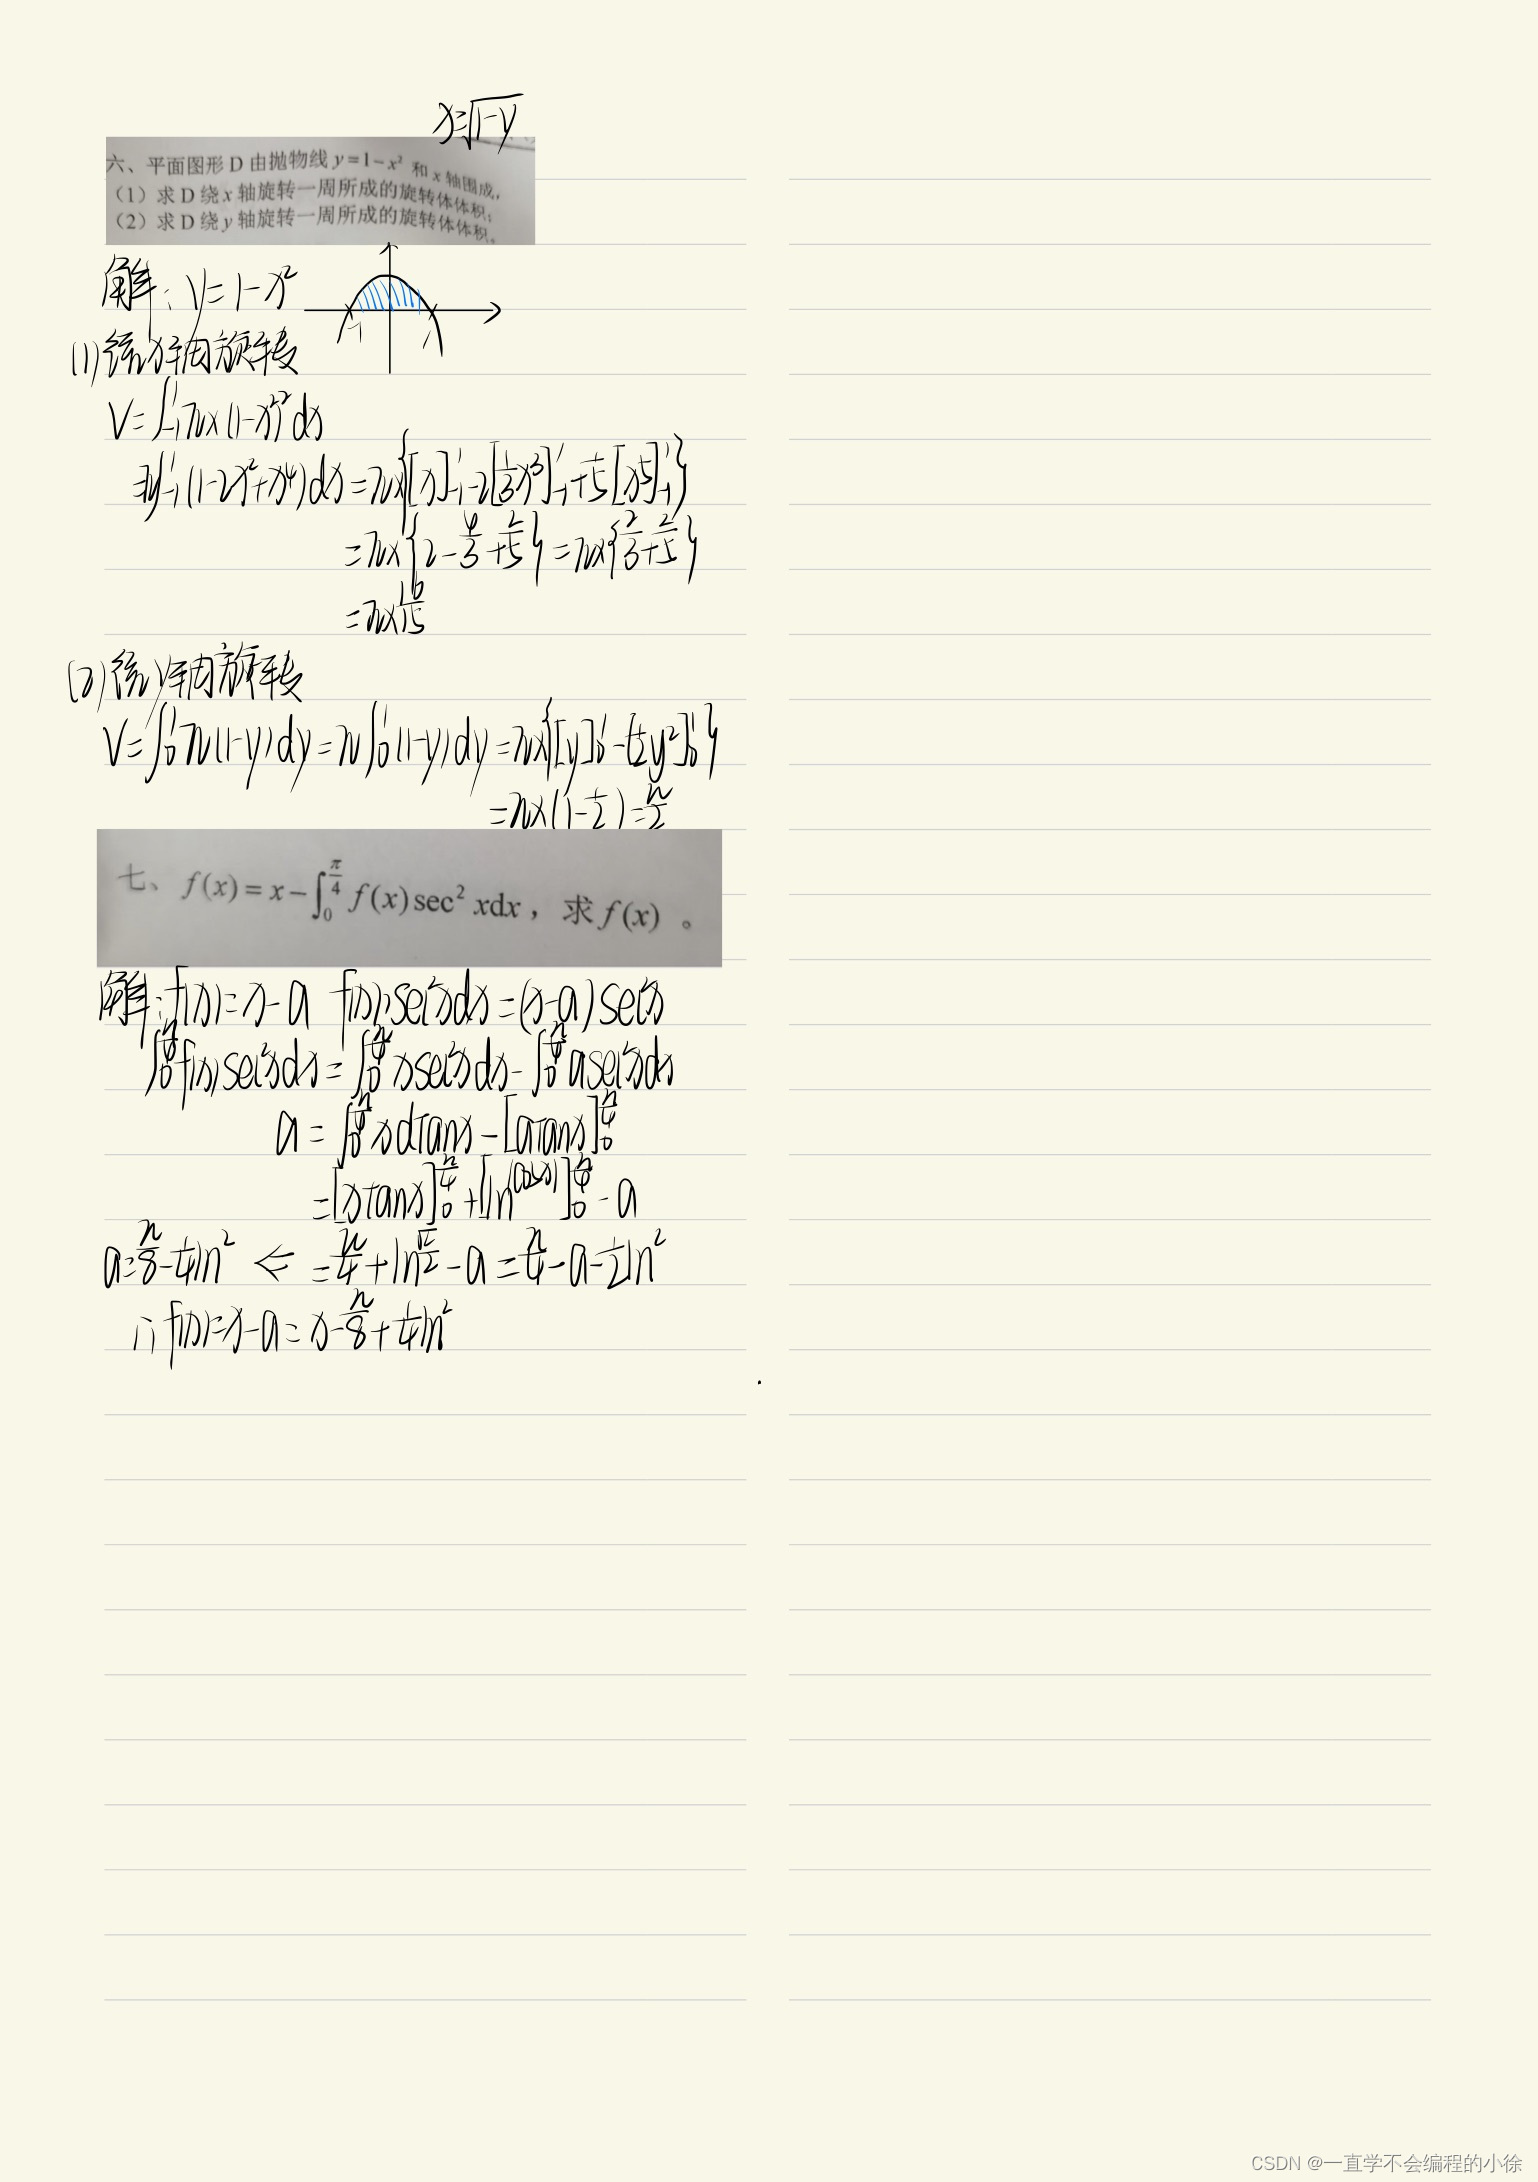 x=√(1-y)
六、平面图形 D 由抛物线 y=1-x² 和 x 轴围成,
(1)求 D 绕 x 轴旋转一周所成的旋转体体积;
(2)求 D 绕 y 轴旋转一周所成的旋转体体积。
解:y=1-x²
-1 1
(1)绕x轴周旋转
V=∫₋₁¹π×(1-x²)²dx
=π∫₋₁¹(1-2x²+x⁴)dx=π×{[x]₋₁¹-2[1/3x³]₋₁¹+1/5[x⁵]₋₁¹}
=π×{2-4/3+2/5}=π×{2/3+2/5}
=π×16/15
(2)绕y轴周旋转
V=∫₀¹π(1-y)dy=π∫₀¹(1-y)dy=π×{[y]₀¹-[1/2y²]₀¹}
=π×(1-1/2)=π/2
七、f(x)=x-∫₀^(π/4) f(x)sec² xdx,求 f(x)。
解:f(x)=x-a f(x)sec²xdx=(x-a)sec²x
∫₀^(π/4)f(x)sec²xdx=∫₀^(π/4)xsec²xdx-∫₀^(π/4)asec²xdx
a=∫₀^(π/4)xdtanx-[atanx]₀^(π/4)
=[xtanx]₀^(π/4)+[ln^(cosx)]₀^(π/4)-a
a=π/8-1/4ln² ⇐ =π/4+ln^(√2/2)-a=π/4-a-1/2ln²
∴f(x)=x-a=x-π/8+1/4ln²
CSDN @一直学不会编程的小徐